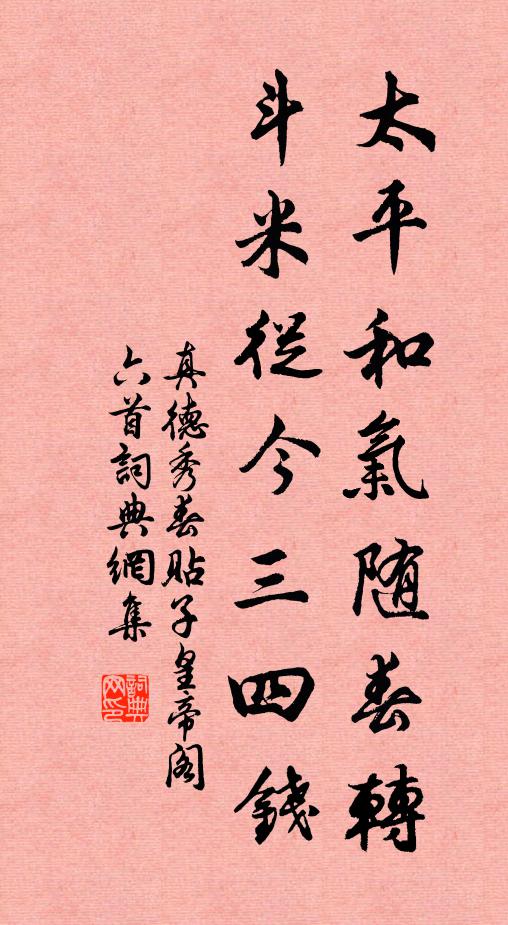 太平和氣随春轉
斗米從今三四錢
真德秀春貼子皇帝阁
六首詞典網集
詞典網印